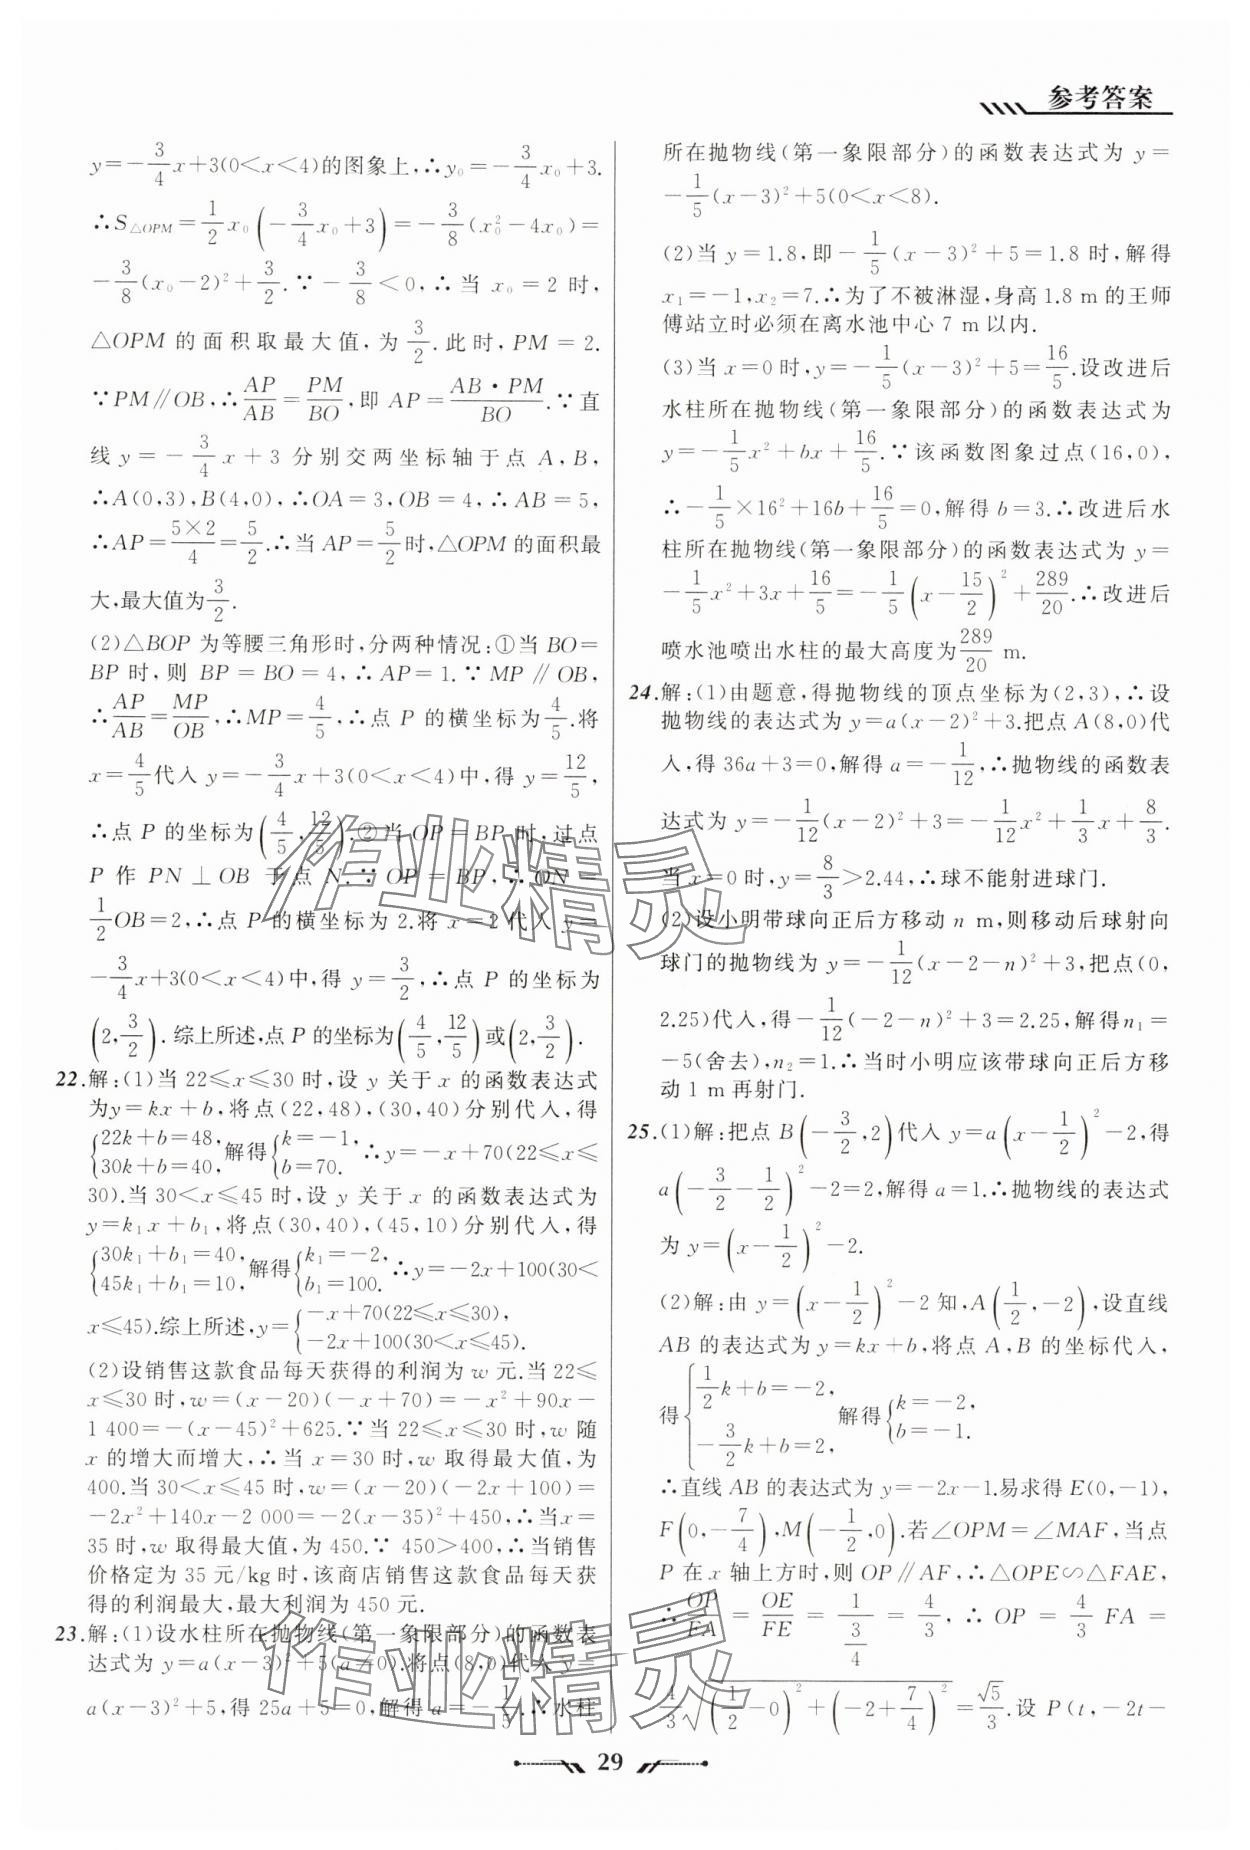 参考答案
y=-3/4x+3(0<x<4)的图象上,∴y₀=-3/4x₀+3.
∴S△OPM=1/2x₀(-3/4x₀+3)=-3/8(x₀²-4x₀)=
-3/8(x₀-2)²+3/2.∵-3/8<0,∴当 x₀=2 时,
△OPM 的面积取最大值,为 3/2.此时,PM=2.
∵PM∥OB,∴AP/AB=PM/BO,即 AP=AB·PM/BO.∵直
线 y=-3/4x+3 分别交两坐标轴于点 A,B,
∴A(0,3),B(4,0),∴OA=3,OB=4,∴AB=5,
∴AP=5×2/4=5/2.∴当 AP=5/2时,△OPM 的面积最
大,最大值为3/2.
(2)△BOP 为等腰三角形时,分两种情况:①当 BO=
BP 时,则 BP=BO=4,∴AP=1.∵MP∥OB,
∴AP/AB=MP/OB,∴MP=4/5,∴点 P 的横坐标为4/5.将
x=4/5代入 y=-3/4x+3(0<x<4)中,得 y=12/5,
∴点 P 的坐标为(4/5,12/5).②当 OP=BP 时,过点
P 作 PN⊥OB 于点 N.∵OP=BP,∴ON=
1/2OB=2,∴点 P 的横坐标为 2.将 x=2 代入 y=
-3/4x+3(0<x<4)中,得 y=3/2,∴点 P 的坐标为
(2,3/2).综上所述,点 P 的坐标为(4/5,12/5)或(2,3/2).
22.解:(1)当 22≤x≤30 时,设 y 关于 x 的函数表达式
为y=kx+b,将点(22,48),(30,40)分别代入,得
{22k+b=48, 30k+b=40,解得{k=-1, b=70. ∴y=-x+70(22≤x≤
30).当 30<x≤45 时,设 y 关于 x 的函数表达式为
y=k₁x+b₁,将点(30,40),(45,10)分别代入,得
{30k₁+b₁=40, 45k₁+b₁=10,解得{k₁=-2, b₁=100. ∴y=-2x+100(30<
x≤45).综上所述,y={-x+70(22≤x≤30), -2x+100(30<x≤45).
(2)设销售这款食品每天获得的利润为 w 元.当 22≤
x≤30 时,w=(x-20)(-x+70)=-x²+90x-
1 400=-(x-45)²+625.∵当 22≤x≤30 时,w 随
x 的增大而增大,∴当 x=30 时,w 取得最大值,为
400.当 30<x≤45 时,w=(x-20)(-2x+100)=
-2x²+140x-2 000=-2(x-35)²+450,∴当 x=
35 时,w 取得最大值,为 450.∵450>400,∴当销售
价格定为 35 元/kg 时,该商店销售这款食品每天获
得的利润最大,最大利润为 450 元.
23.解:(1)设水柱所在抛物线(第一象限部分)的函数表
达式为 y=a(x-3)²+5(a≠0).将点(8,0)代入 y=
a(x-3)²+5,得 25a+5=0,解得 a=-1/5.∴水柱
所在抛物线(第一象限部分)的函数表达式为 y=
-1/5(x-3)²+5(0<x<8).
(2)当 y=1.8,即-1/5(x-3)²+5=1.8 时,解得
x₁=-1,x₂=7.∴为了不被淋湿,身高1.8 m的王师
傅站立时必须在离水池中心 7 m 以内.
(3)当 x=0 时,y=-1/5(x-3)²+5=16/5.设改进后
水柱所在抛物线(第一象限部分)的函数表达式为
y=-1/5x²+bx+16/5.∵该函数图象过点(16,0),
∴-1/5×16²+16b+16/5=0,解得 b=3.∴改进后水
柱所在抛物线(第一象限部分)的函数表达式为 y=
-1/5x²+3x+16/5=-1/5(x-15/2)²+289/20.∴改进后
喷水池喷出水柱的最大高度为289/20 m.
24.解:(1)由题意,得抛物线的顶点坐标为(2,3),∴设
抛物线的表达式为 y=a(x-2)²+3.把点 A(8,0)代
入,得 36a+3=0,解得 a=-1/12,∴抛物线的函数表
达式为 y=-1/12(x-2)²+3=-1/12x²+1/3x+8/3.
当 x=0 时,y=8/3>2.44,∴球不能射进球门.
(2)设小明带球向正后方移动 n m,则移动后球射向
球门的抛物线为 y=-1/12(x-2-n)²+3,把点(0,
2.25)代入,得-1/12(-2-n)²+3=2.25,解得n₁=
-5(舍去),n₂=1.∴当时小明应该带球向正后方移
动 1 m 再射门.
25.(1)解:把点 B(-3/2,2)代入 y=a(x-1/2)²-2,得
a(-3/2-1/2)²-2=2,解得 a=1.∴抛物线的表达式
为 y=(x-1/2)²-2.
(2)解:由 y=(x-1/2)²-2 知,A(1/2,-2),设直线
AB 的表达式为 y=kx+b,将点 A,B 的坐标代入,
得{1/2k+b=-2, -3/2k+b=2,解得{k=-2, b=-1.
∴直线 AB 的表达式为 y=-2x-1.易求得 E(0,-1),
F(0,-7/4),M(-1/2,0).若∠OPM=∠MAF,当点
P 在 x 轴上方时,则 OP∥AF,∴△OPE∽△FAE,
∴OP/FA=OE/FE=1/(3/4)=4/3,∴OP=4/3FA=
4/3√((1/2-0)²+(-2+7/4)²)=√5/3.设 P(t,-2t-
29
作业精灵
作业精灵